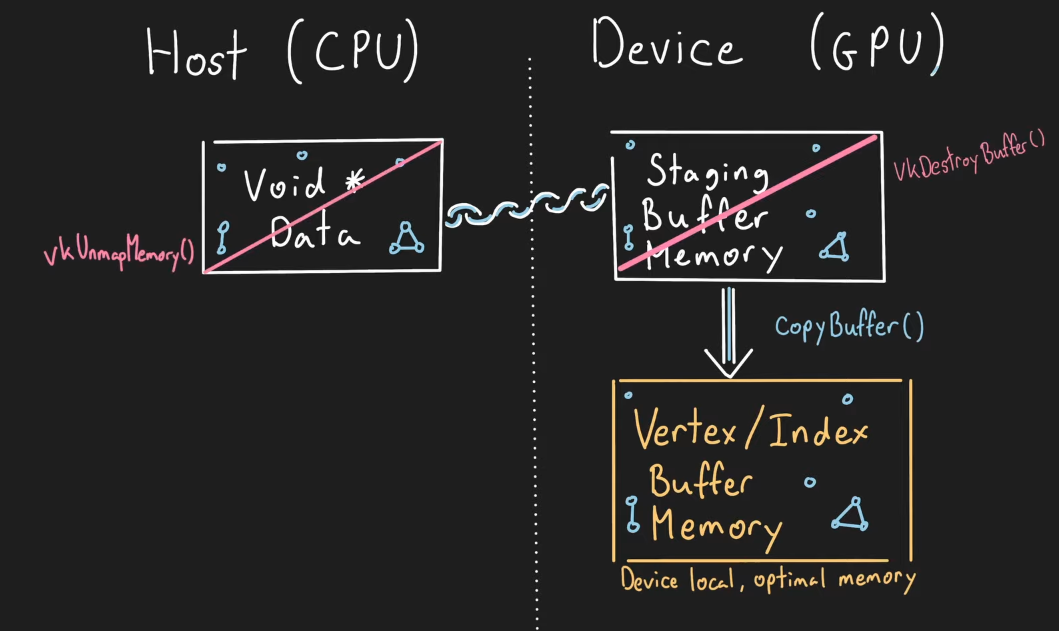 Host (CPU)
Device (GPU)
Void *
Data
vkUnmapMemory()
Staging
Buffer
Memory
vkDestroyBuffer()
CopyBuffer()
Vertex/Index
Buffer
Memory
Device local, optimal memory